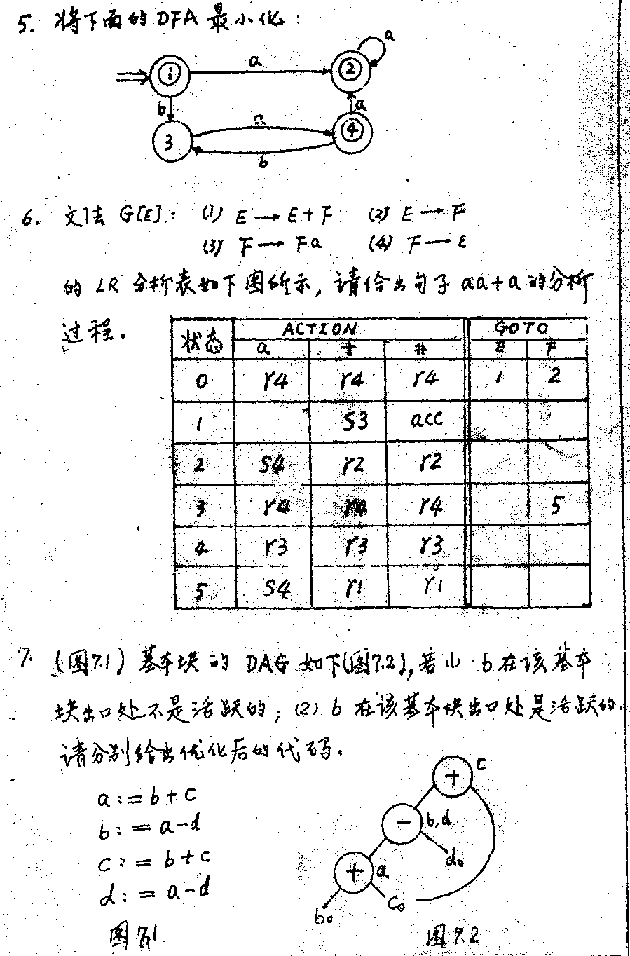 5. 将下面的 DFA 最小化:
a
1 a 2
b a a
3 4
b
6. 文法 G[E]: (1) E → E+F (2) E → F
(3) F → Fa (4) F → ε
的 LR 分析表如下图所示, 请给出句子 aa+a 的分析
过程.
状态 ACTION GOTO
a + # E F
0 r4 r4 r4 1 2
1 S3 acc
2 S4 r2 r2
3 r4 r4 r4 5
4 r3 r3 r3
5 S4 r1 r1
7. (图7.1) 基本块的 DAG 如下(图7.2), 若(1) b在该基本
块出口处不是活跃的; (2) b 在该基本块出口处是活跃的.
请分别给出优化后的代码.
a:=b+c
b:=a-d
c:=b+c
d:=a-d
图7.1
+ c
- b,d
d₀
+ a
b₀ c₀
图7.2